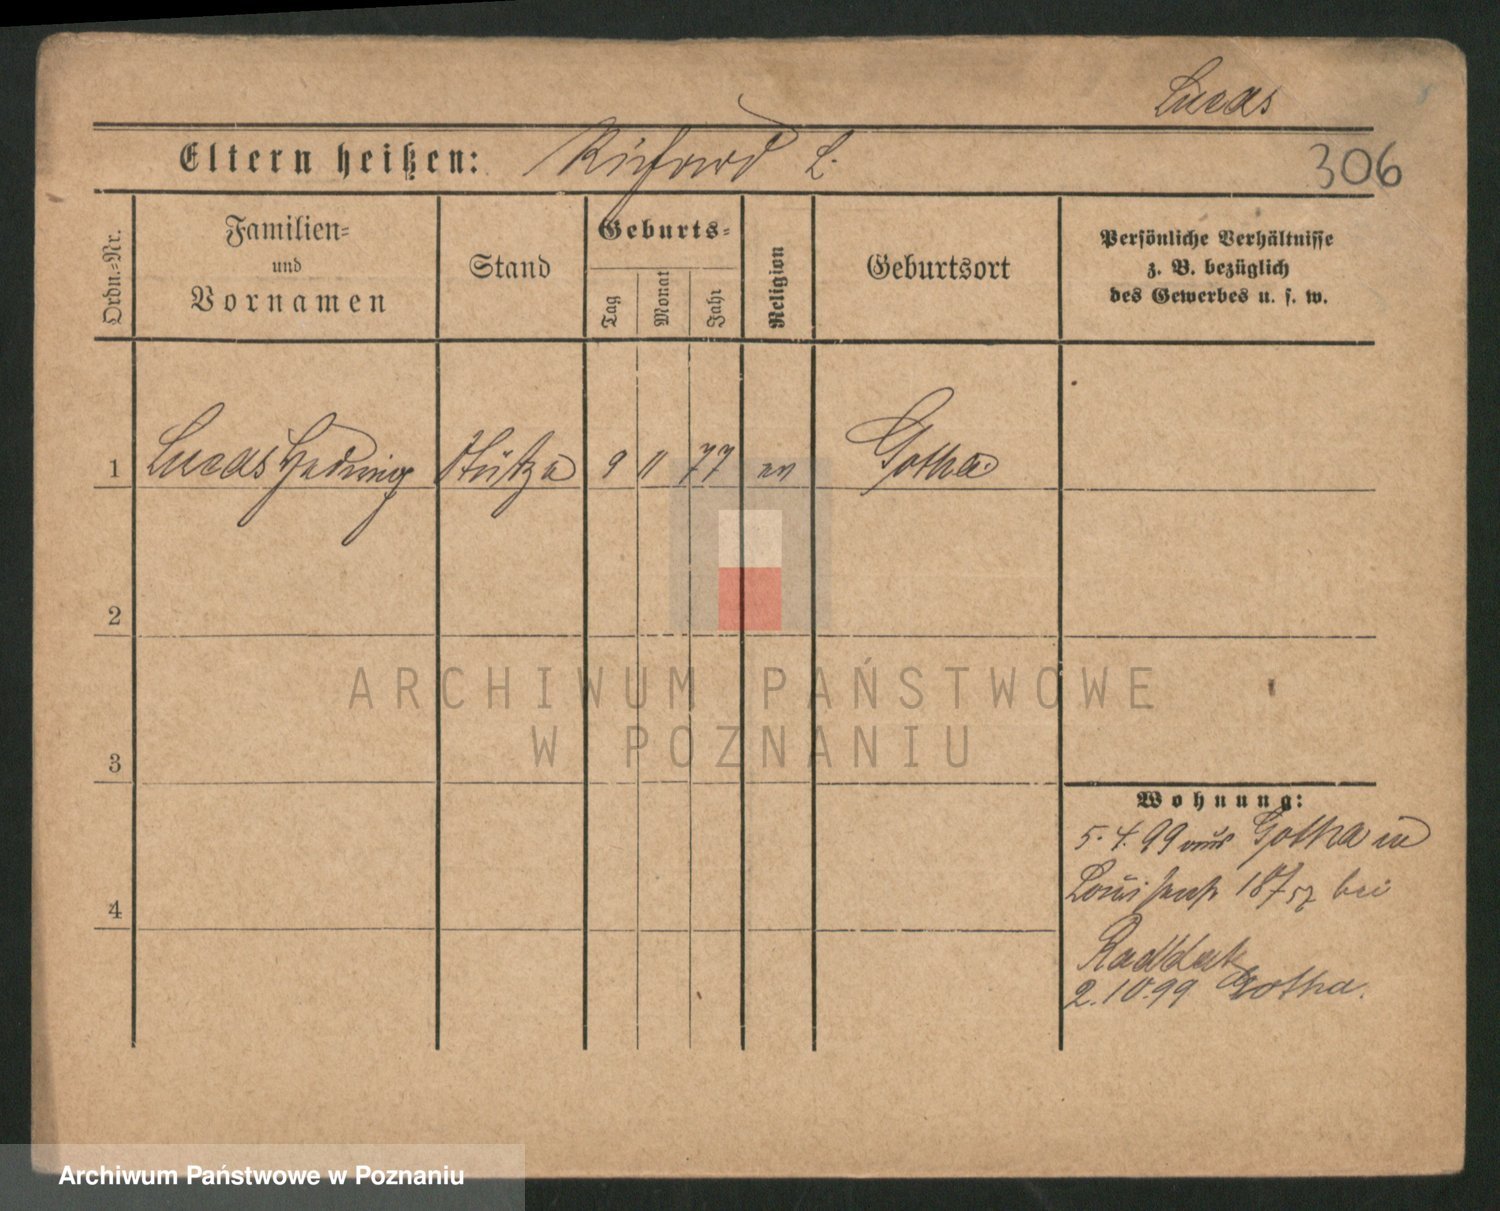 Lucas
Eltern heißen: Richard L.
306
Ordn.=Nr.
Familien=
und
Vornamen
Stand
Geburts=
Tag
Monat
Jahr
Religion
Geburtsort
Persönliche Verhältnisse
z. B. bezüglich
des Gewerbes u. s. w.
1 Lucas Hedwig Stütze 9 11 77 ev Gotha
2
ARCHIWUM PAŃSTWOWE
W POZNANIU
3
Wohnung:
5.4.99 aus Gotha in
Louisenstr 187 bei
4
Raddatz
2.10.99 Gotha.
Archiwum Państwowe w Poznaniu